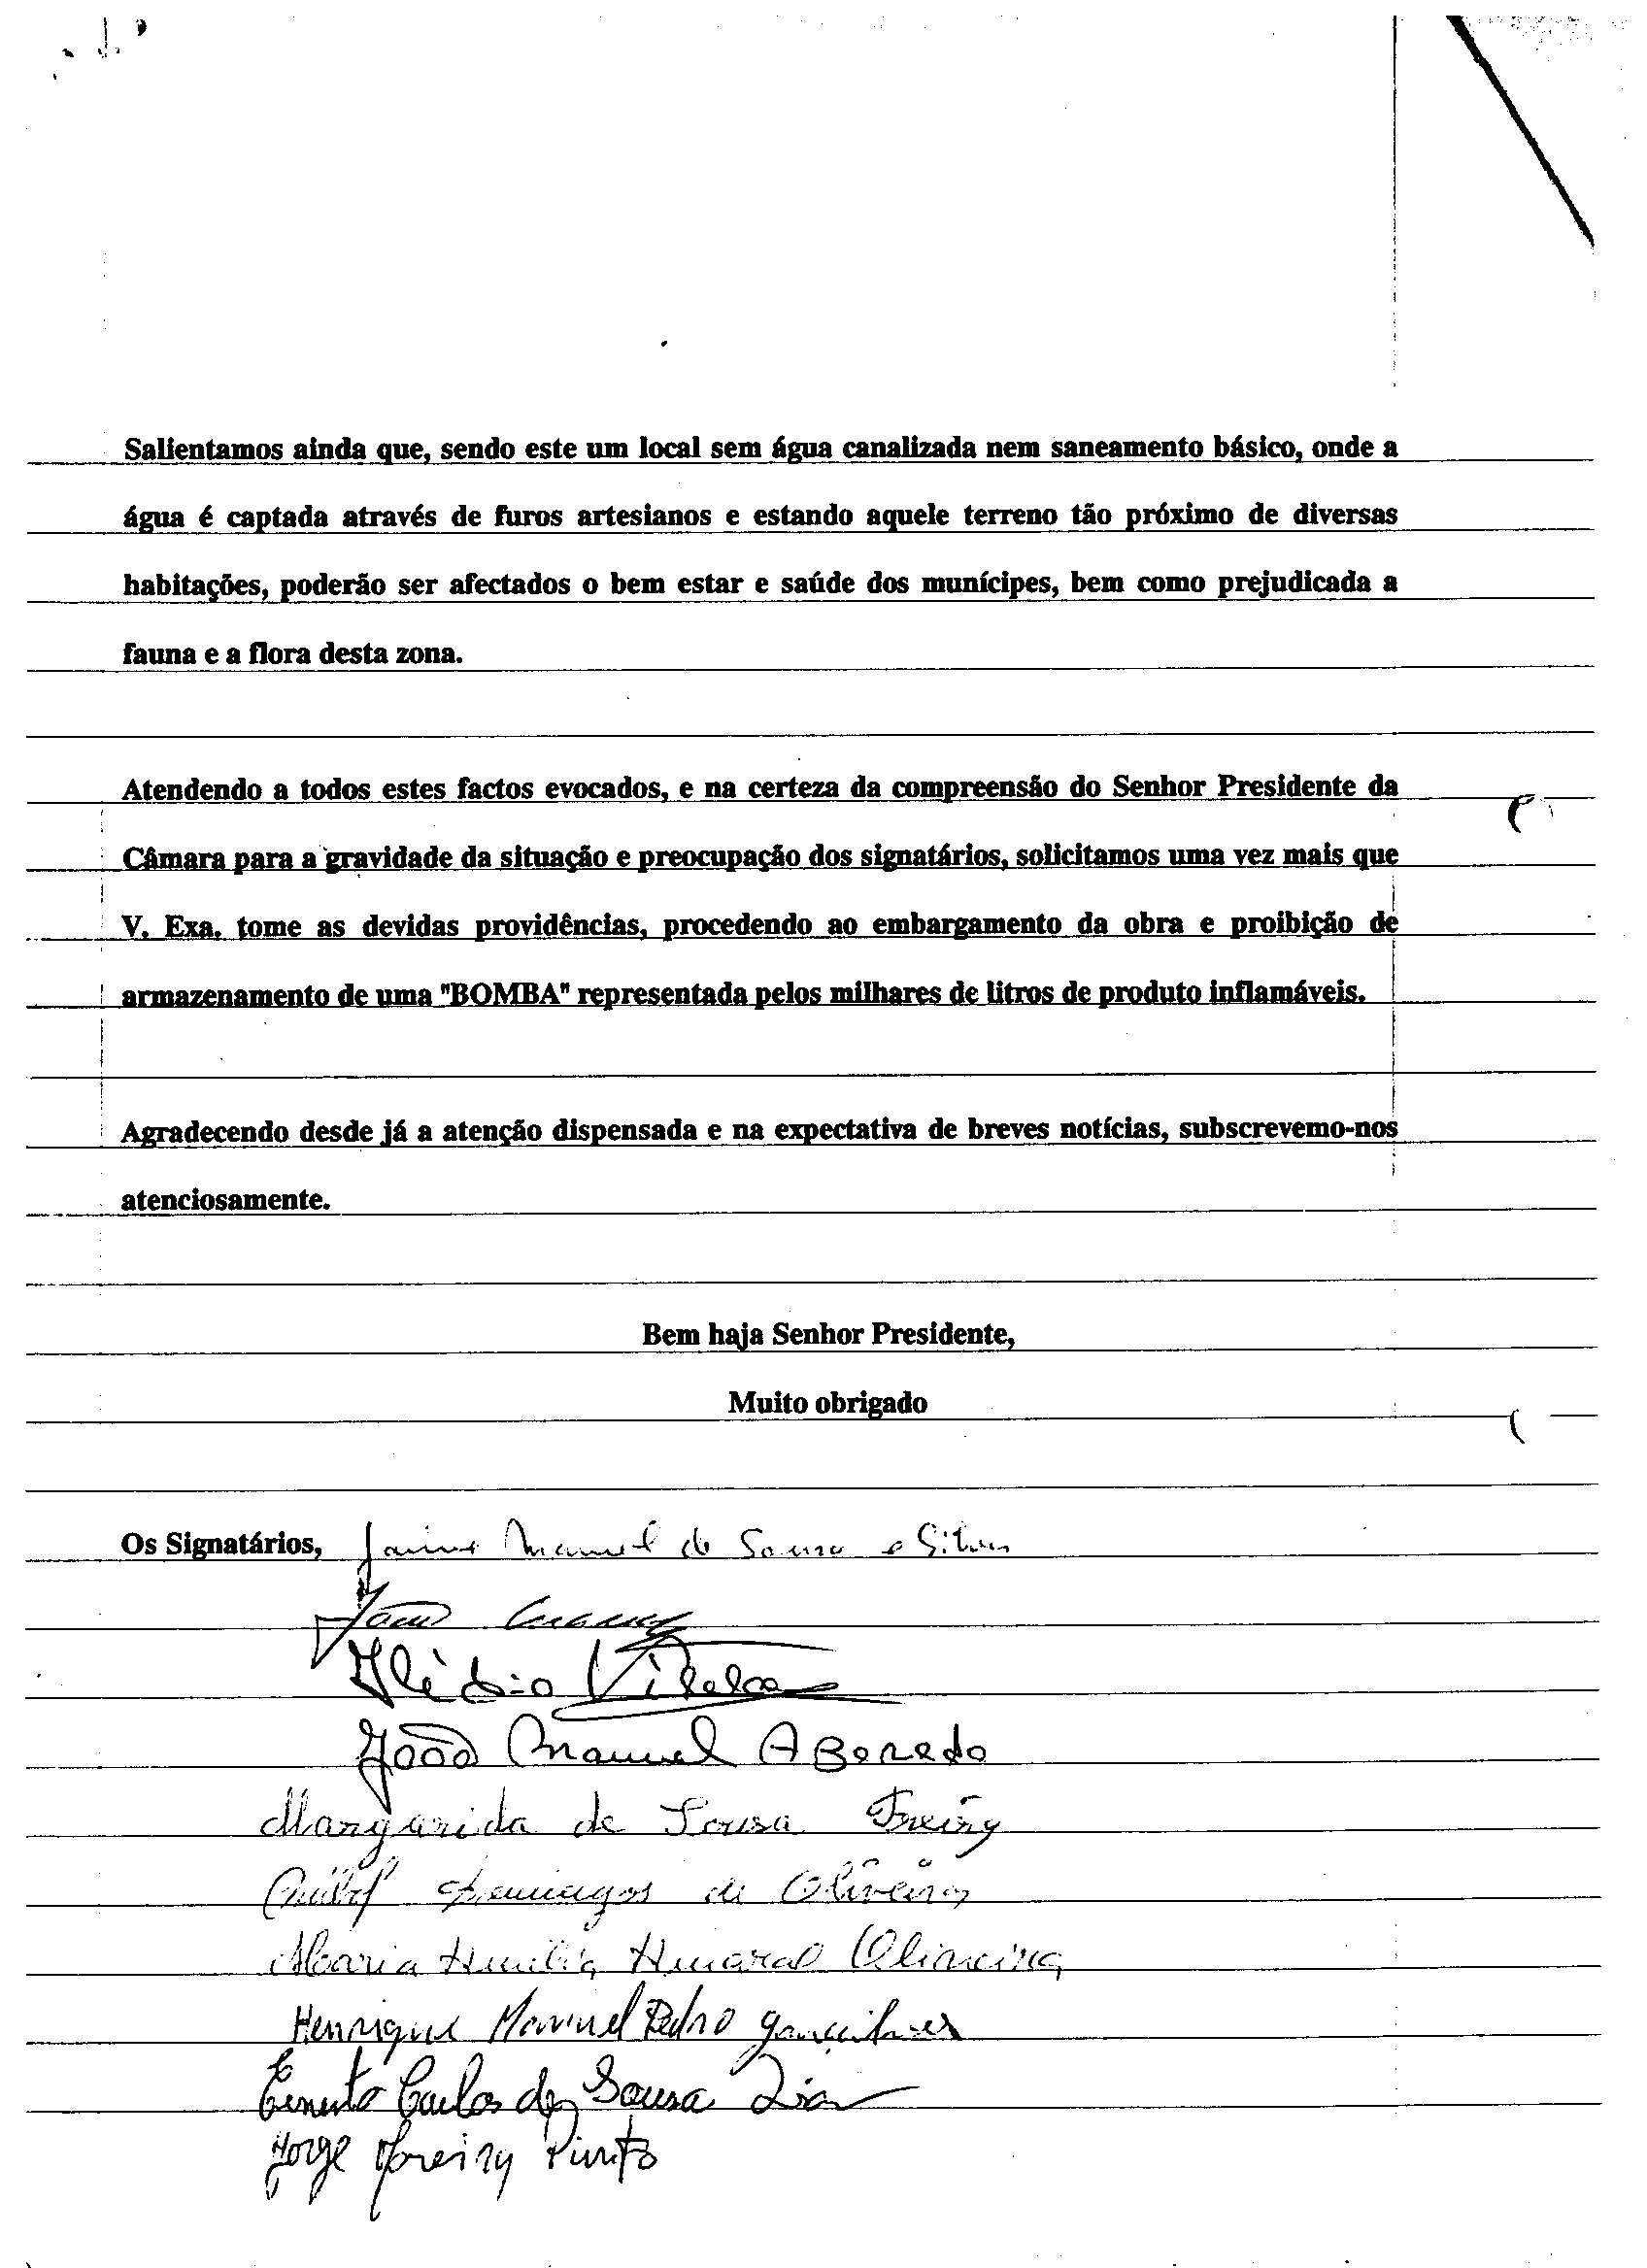 Salientamos ainda que, sendo este um local sem água canalizada nem saneamento básico, onde a
água é captada através de furos artesianos e estando aquele terreno tão próximo de diversas
habitações, poderão ser afectados o bem estar e saúde dos munícipes, bem como prejudicada a
fauna e a flora desta zona.
Atendendo a todos estes factos evocados, e na certeza da compreensão do Senhor Presidente da
Câmara para a gravidade da situação e preocupação dos signatários, solicitamos uma vez mais que
V. Exa. tome as devidas providências, procedendo ao embargamento da obra e proibição de
armazenamento de uma "BOMBA" representada pelos milhares de litros de produto inflamáveis.
Agradecendo desde já a atenção dispensada e na expectativa de breves notícias, subscrevemo-nos
atenciosamente.
Bem haja Senhor Presidente,
Muito obrigado
Os Signatários, Jaime Manuel de Sousa e Silva
Ilídio Vilela
João Manuel Azeredo
Margarida de Sousa
Domingos de Oliveira
Maria Oliveira
Henrique Manuel Pedro Gonçalves
Ernesto Carlos de Sousa Dias
Jorge Moreira Pinto